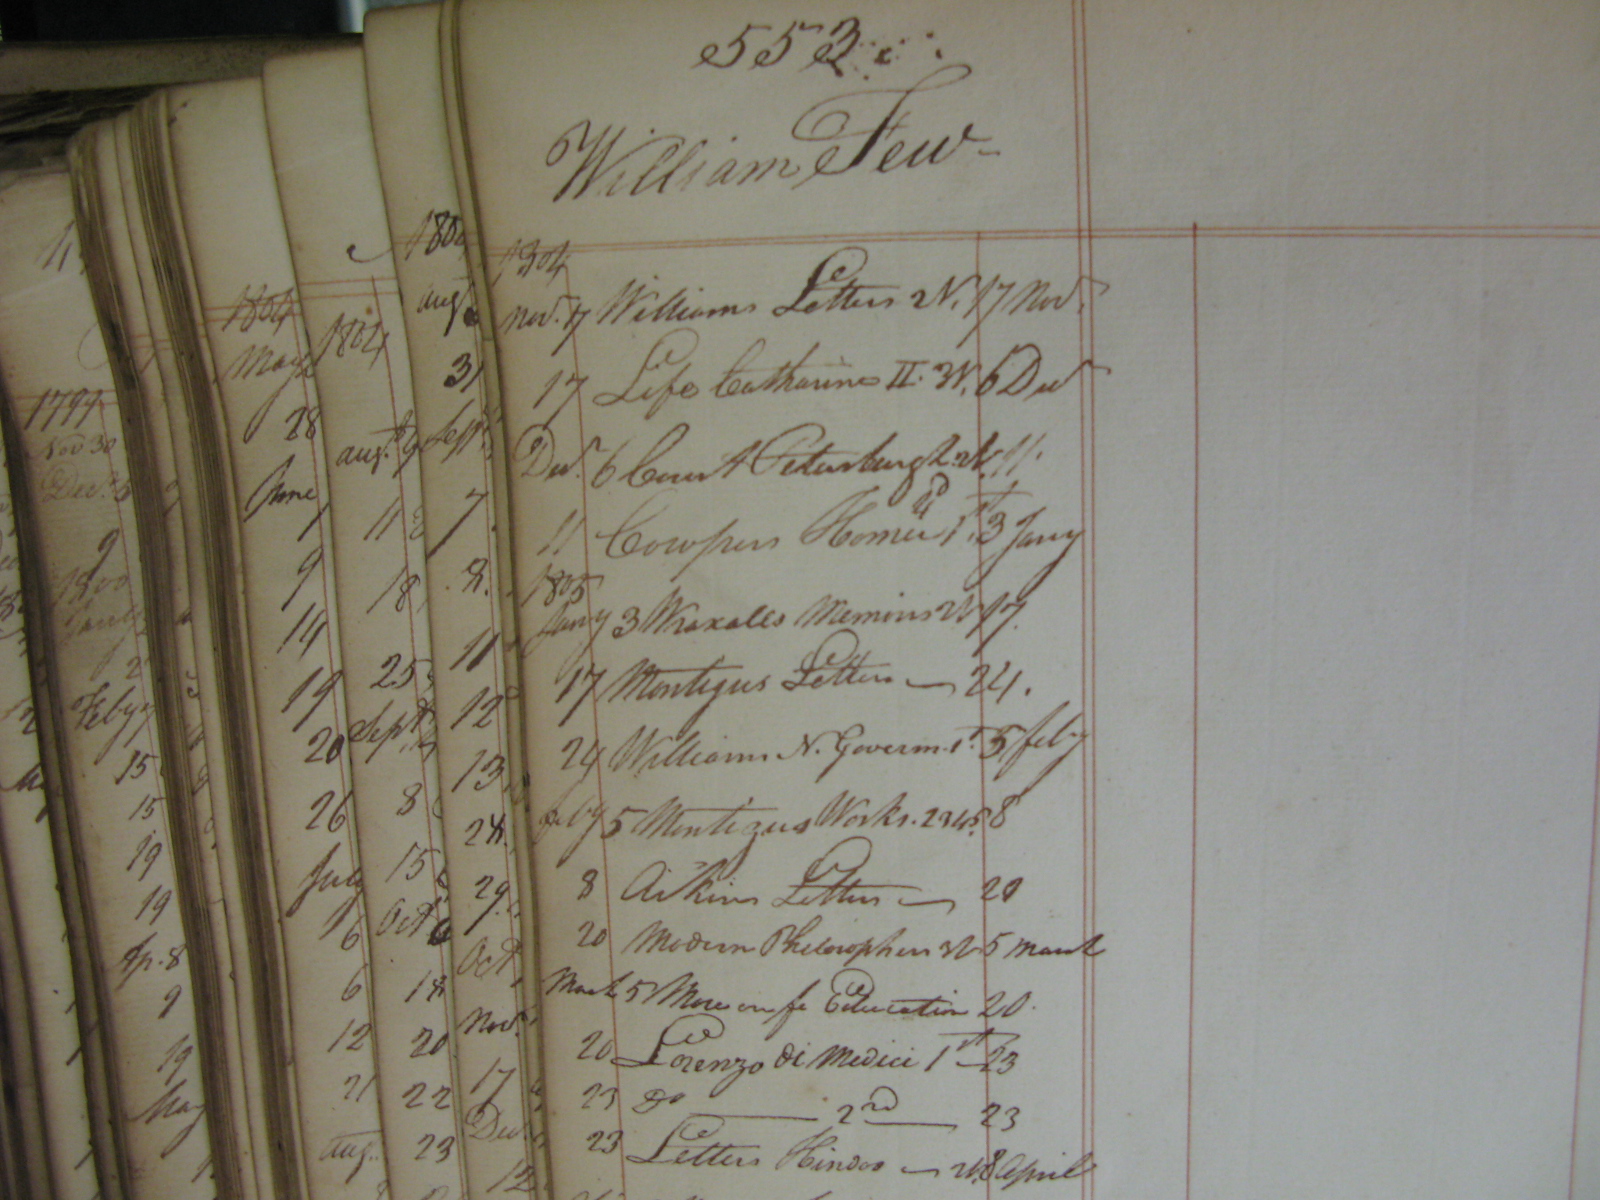 553
William Few
1804
Nov. 17 Williams Letters W. 17 Nov.
17 Life Catharine II. W. 6 Decr
Decr. 6 Court Petersburgh 2. W. 11.
11 Cowpers Homer 1st. 3 Jany
1805
Jany 3 Wraxalls Memoirs W 17.
17 Montigus Letters 24.
24 Williams N. Governm. 1st. 5 feby
feby 5 Montigus Works. 2345 8
8 Aikins Letters 20
20 Modern Philosophers W 5 March
March 5 More on fe Education 20.
20 Lorenzo di Medici 1st 23
23 Do 2nd 23
23 Letters Hindoo W. 8 April
1799
Nov 30
Dec. 5
9
1800
Jany
Feby
15
15
19
19
Ap. 8
9
19
May
1804
May
28
June
9
14
19
20
26
July
6
6
12
21
aug.
1804
augt 9
11
18
25
Sept
8
15
Oct 6
18
20
22
23
aug
31
Sept
7.
8.
11
12
13
24.
29.
Oct
Nov.
17
Decr
12